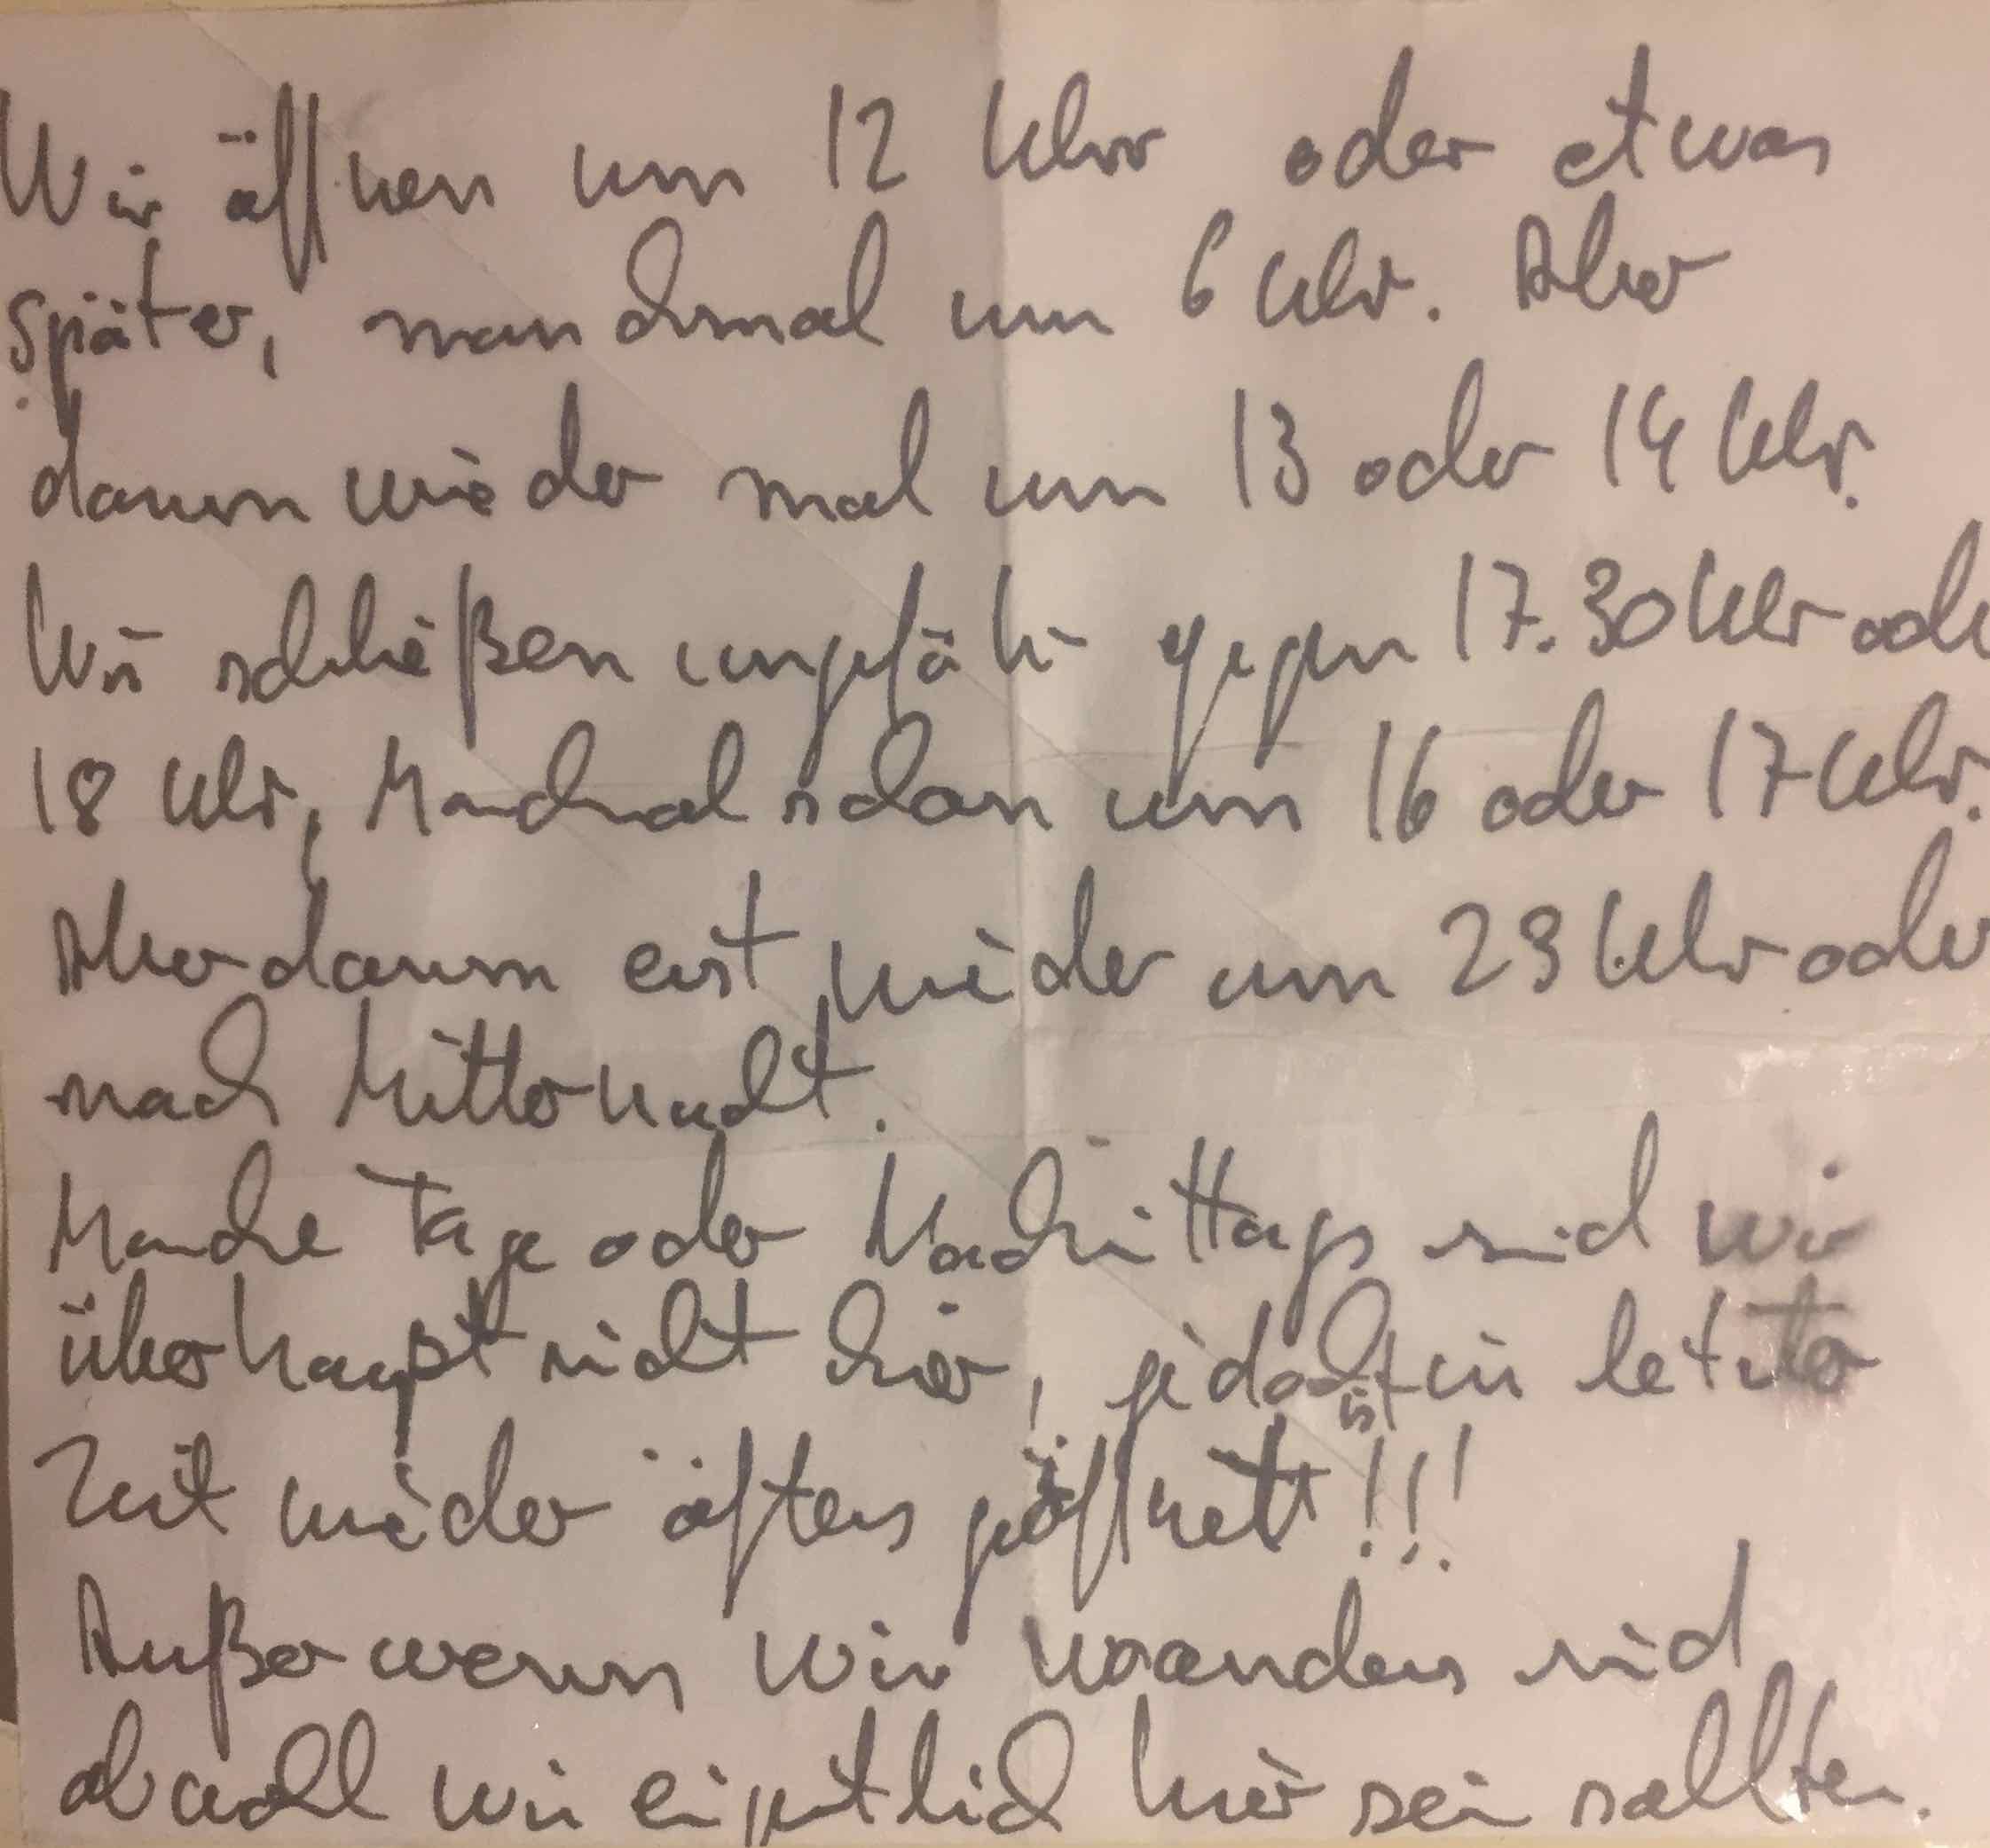 Wir öffnen um 12 Uhr oder etwas
später, manchmal um 6 Uhr. Aber
dann wieder mal um 13 oder 14 Uhr.
Wir schließen ungefähr gegen 17.30 Uhr oder
18 Uhr, Manchmal schon um 16 oder 17 Uhr.
Aber dann erst wieder um 23 Uhr oder
nach Mitternacht.
Manche Tage oder Nachmittags sind wir
überhaupt nicht hier, jedoch ist in letzter
Zeit wieder öfters geöffnet!!!
Außer wenn wir woanders sind
obwohl wir eigentlich hier sein sollten.